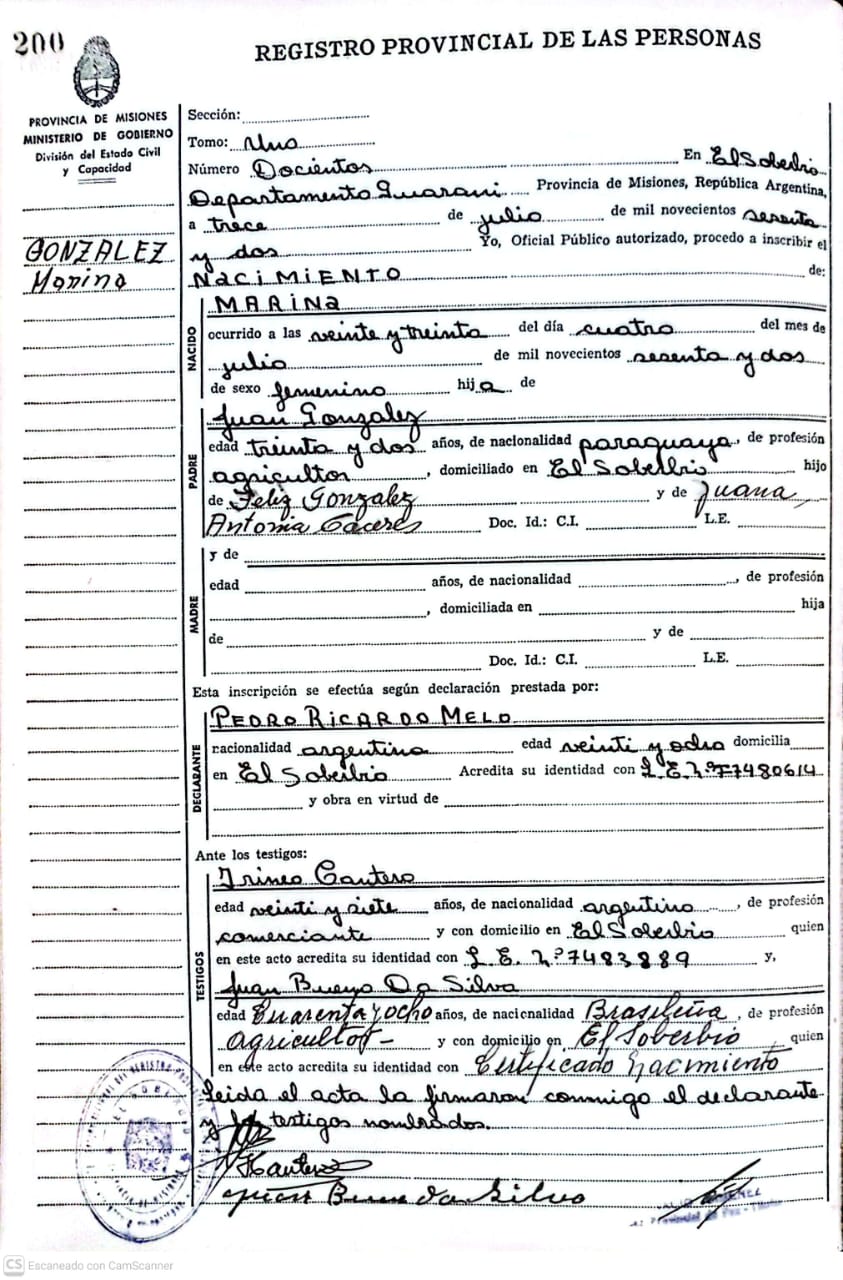 200
REGISTRO PROVINCIAL DE LAS PERSONAS
PROVINCIA DE MISIONES
MINISTERIO DE GOBIERNO
División del Estado Civil
y Capacidad
GONZALEZ
Marina
Sección:
Tomo: Uno
Número Docientos En El Soberbio
Departamento Guarani Provincia de Misiones, República Argentina,
a trece de julio de mil novecientos sesenta
y dos Yo, Oficial Público autorizado, procedo a inscribir el
NACIMIENTO de:
NACIDO
MARINA
ocurrido a las veinte y treinta del día cuatro del mes de
julio de mil novecientos sesenta y dos
de sexo femenino hija de
PADRE
Juan Gonzalez
edad treinta y dos años, de nacionalidad paraguaya, de profesión
agricultor, domiciliado en El Soberbio hijo
de Feliz Gonzalez y de Juana
Antonia Caceres Doc. Id.: C.I. L.E.
MADRE
y de
edad años, de nacionalidad , de profesión
, domiciliada en hija
de y de
Doc. Id.: C.I. L.E.
Esta inscripción se efectúa según declaración prestada por:
DECLARANTE
PEDRO RICARDO MELO
nacionalidad argentina edad veinti y ocho domicilia
en El Soberbio Acredita su identidad con L.E. Nº 7480614
y obra en virtud de
Ante los testigos:
TESTIGOS
Irineo Cantero
edad veinti y siete años, de nacionalidad argentino, de profesión
comerciante y con domicilio en El Soberbio quien
en este acto acredita su identidad con L.E. Nº 7483889 y,
Juan Bueno Da Silva
edad Cuarenta y ocho años, de nacionalidad Brasileña, de profesión
Agricultor- y con domicilio en El Soberbio, quien
en este acto acredita su identidad con Certificado Nacimiento
Leida el acta la firmaron conmigo el declarante
y testigos nombrados.
Juan Bueno da Silva
CS Escaneado con CamScanner